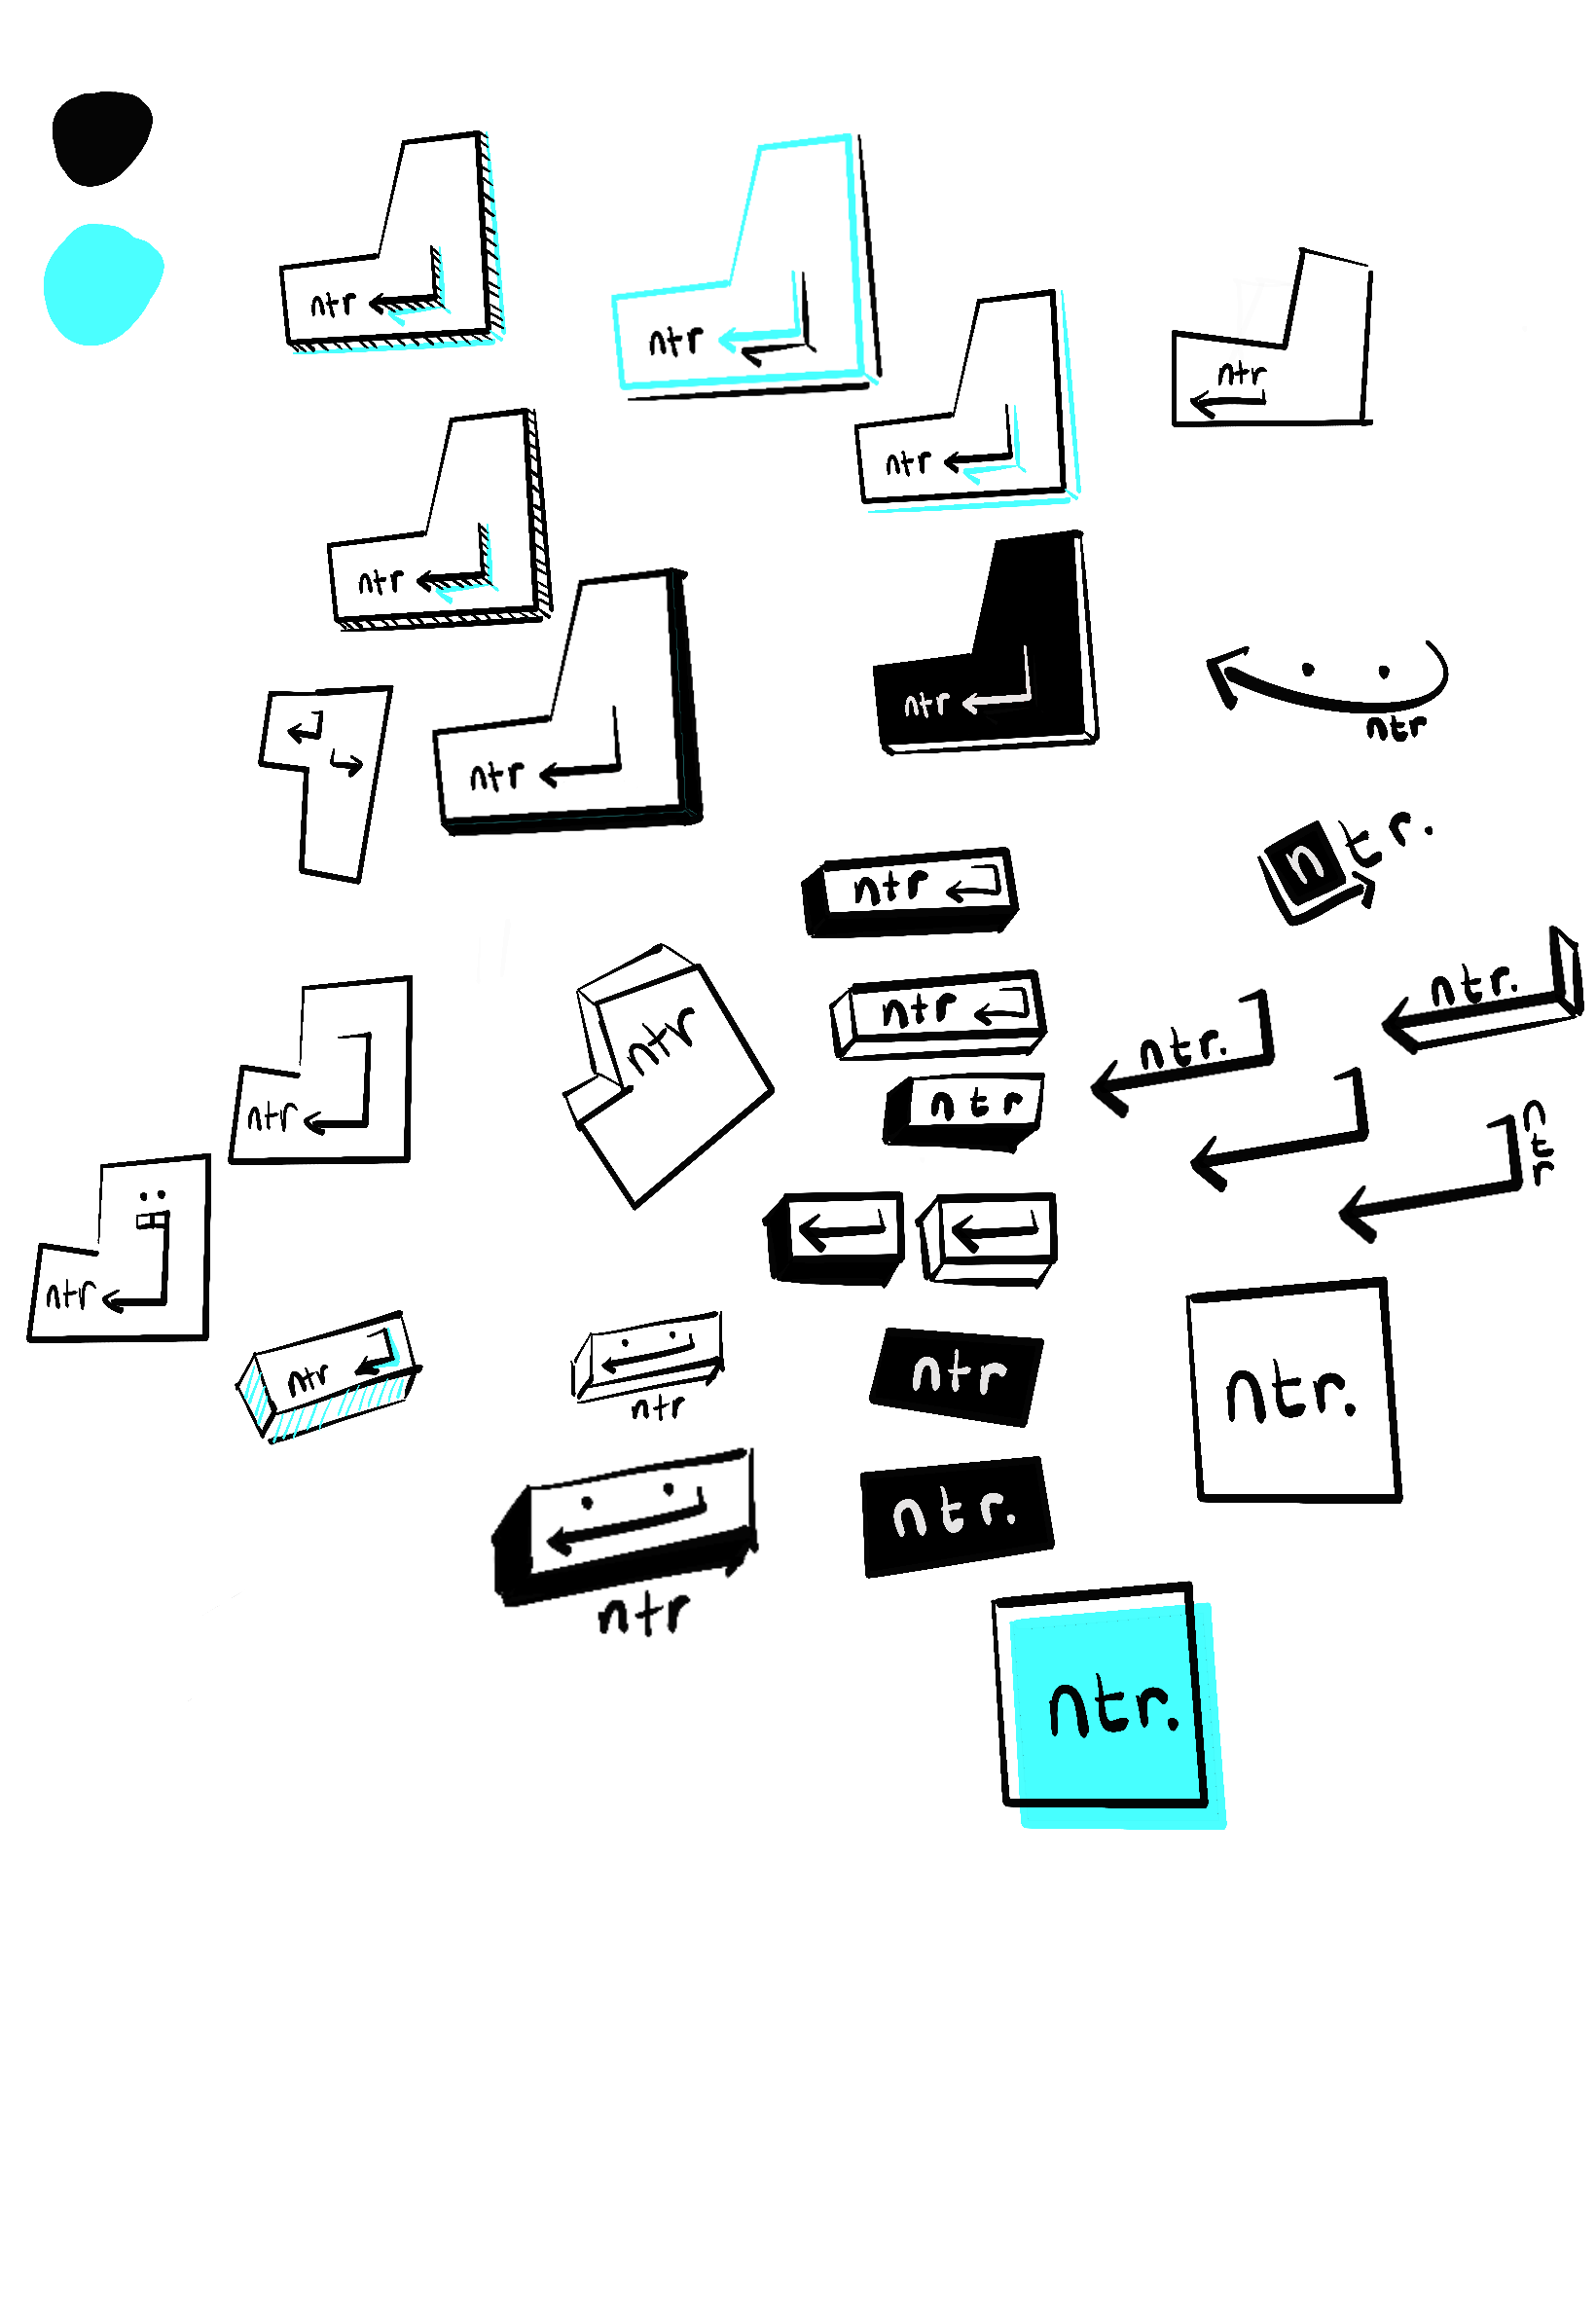 ntr
ntr
ntr
ntr
ntr
ntr
ntr
ntr
ntr
ntr.
ntr
ntr.
ntr
ntr
ntr.
ntr
ntr
ntr
ntr
ntr
ntr
ntr
ntr.
ntr.
ntr
ntr.